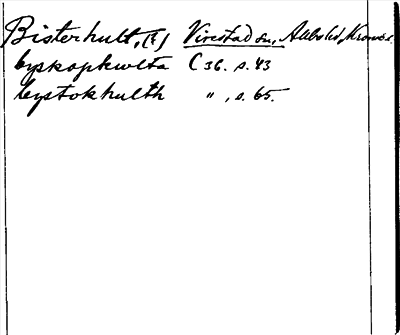 Bisterhult, (?) Virestad sn, Allbo hd, Kronob.
byskophwlta C 36. s. 43
bystokhulth " , s. 65.